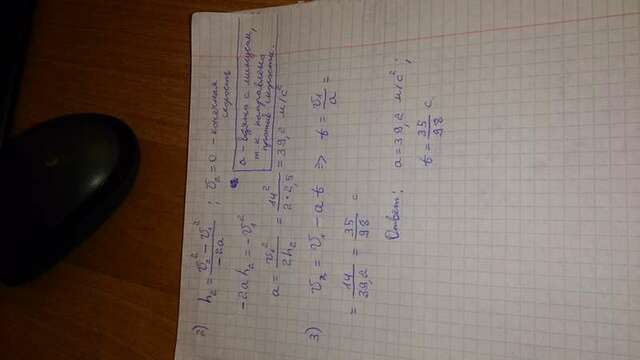 2) h₂ = (v₂² - v₁²)/(-2a) ; v₂ = 0 - конечная
скорость
-2ah₂ = -v₁²
a - взята с минусом,
т.к. направлена
против скорости.
a = v₁²/(2h₂) = 14²/(2·2,5) = 39,2 м/с²
3) vₓ = v₁ - at ⇒ t = v₁/a =
= 14/39,2 = 35/98 с
Ответ: a = 39,2 м/с² ;
t = 35/98 с